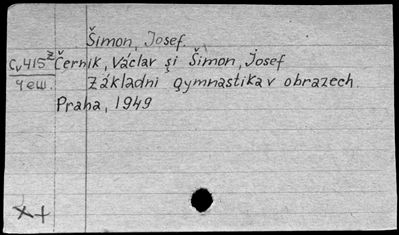 Šimon, Josef.
Cv415z Černik, Václav și Šimon, Josef
Základni gymnastika v obrazech.
Praha, 1949